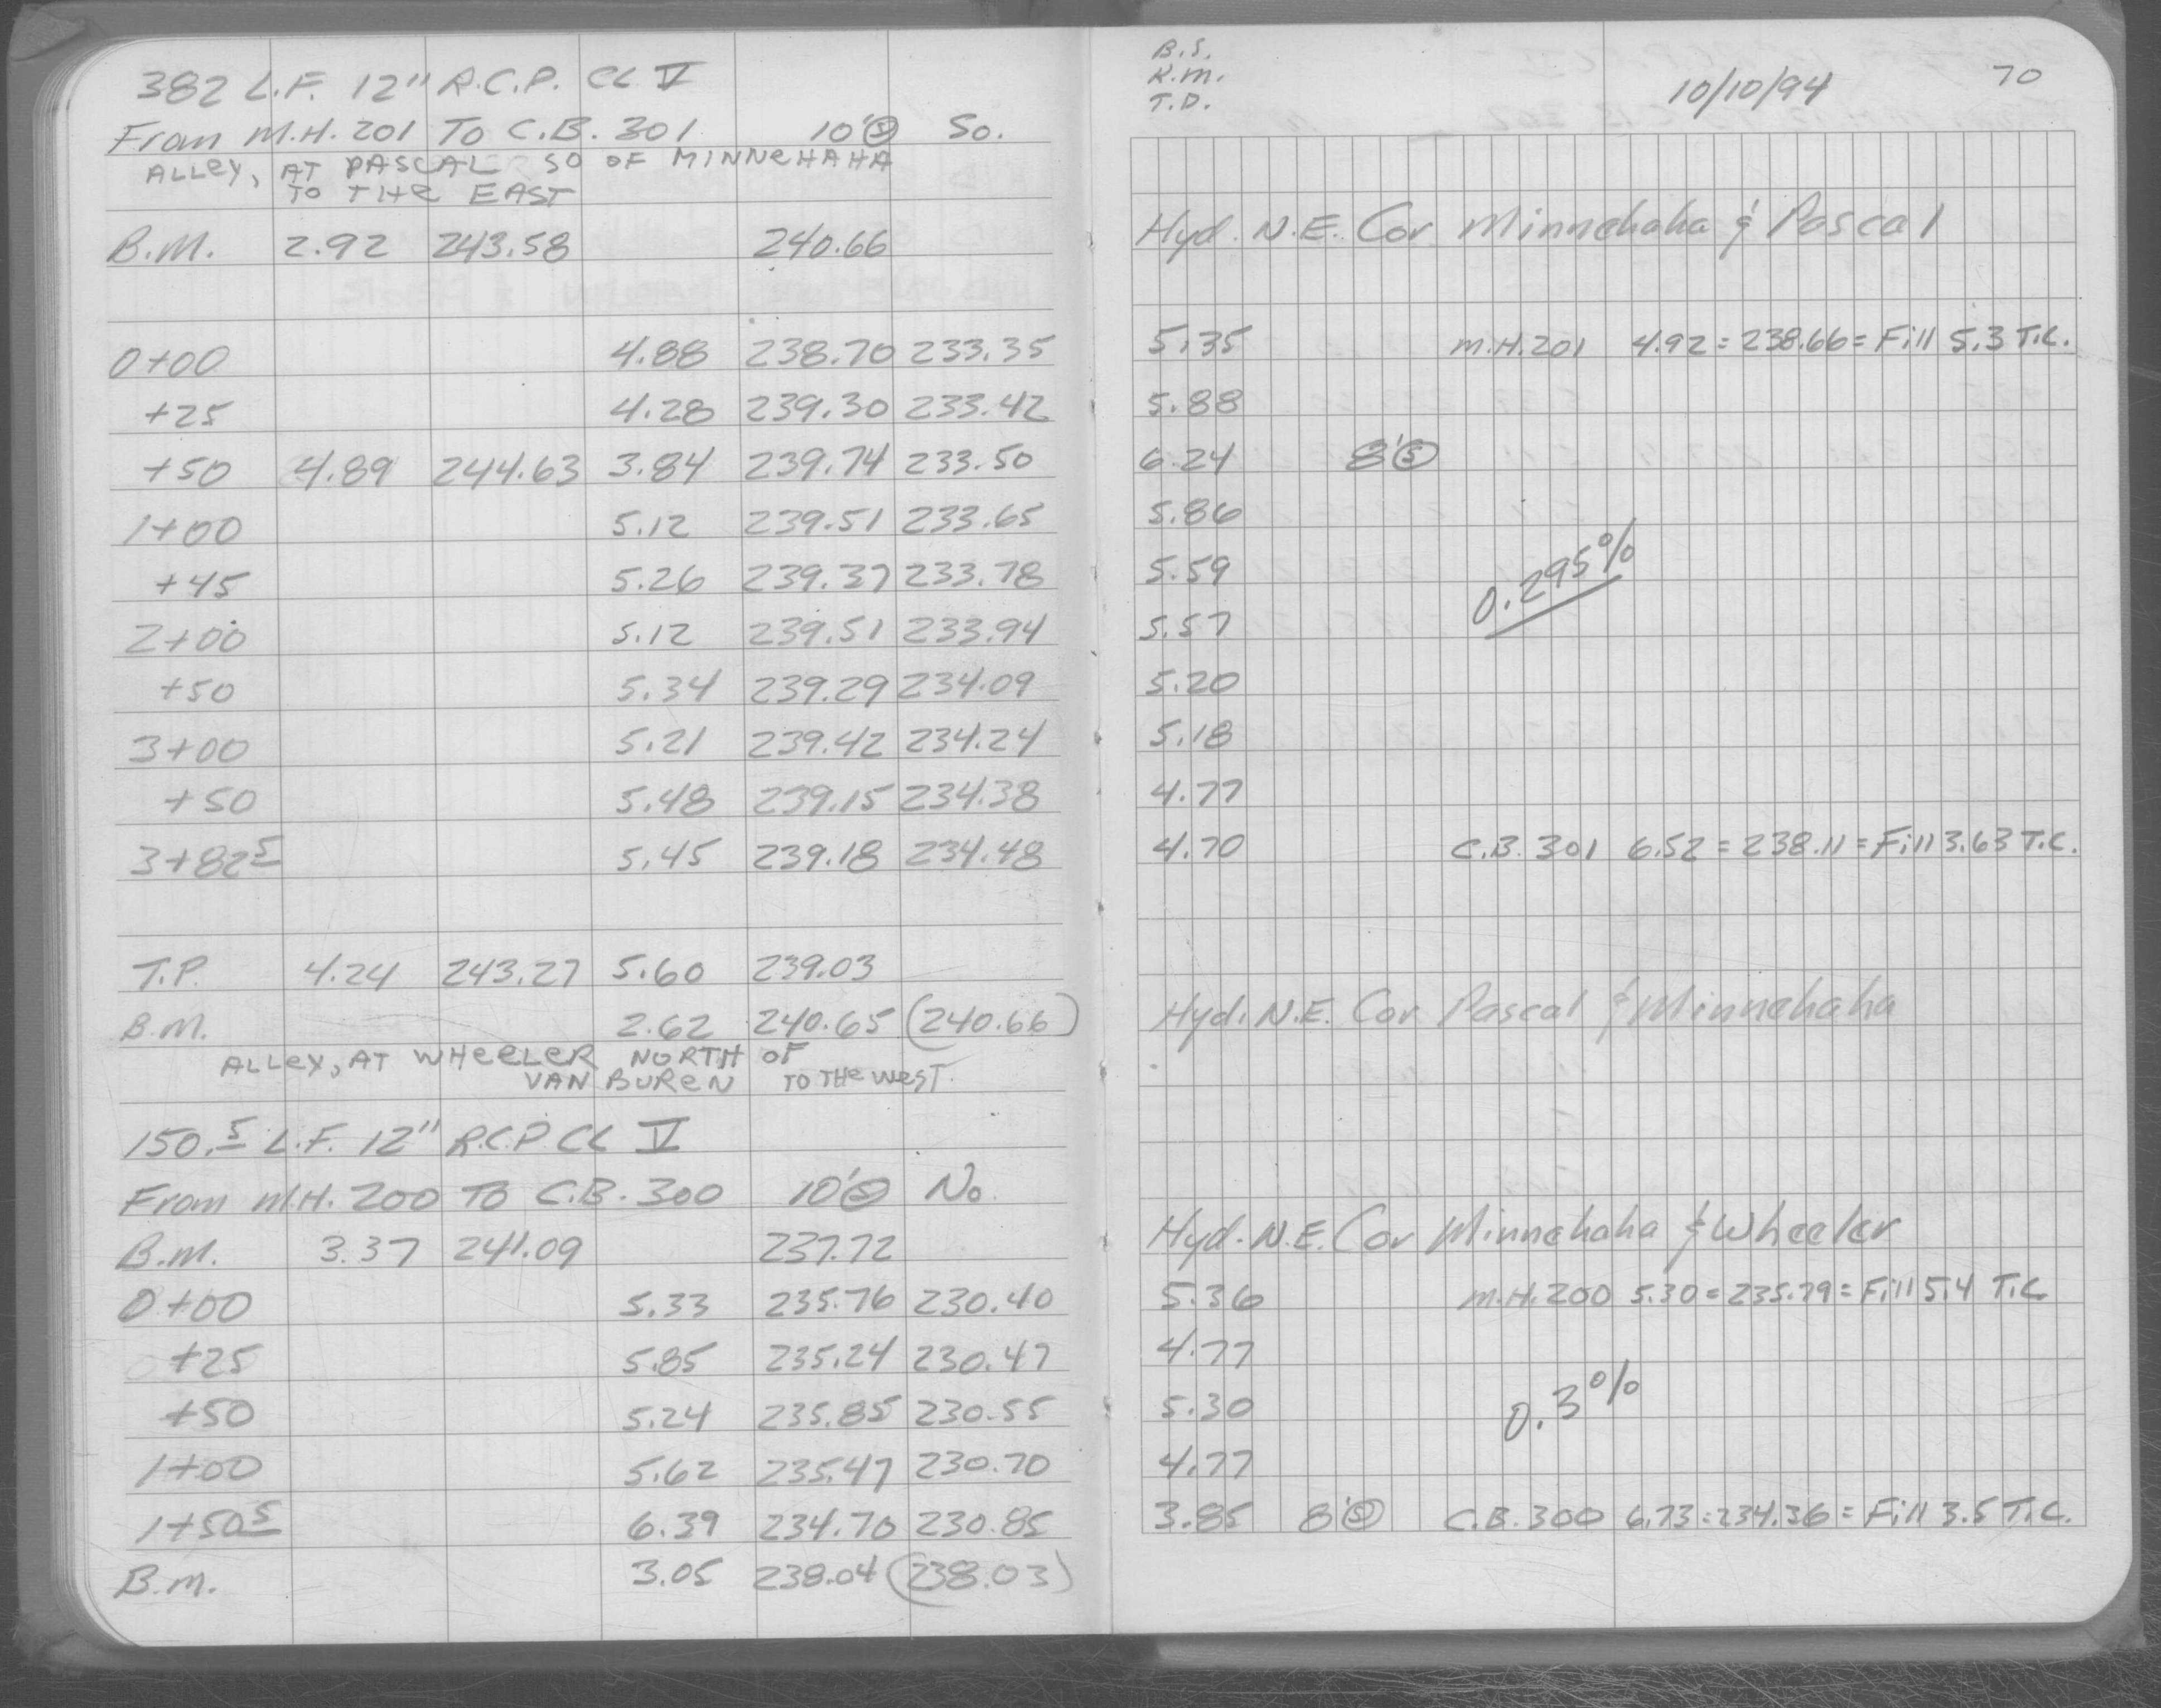 382 L.F. 12" R.C.P. CL V
From M.H. 201 To C.B. 301 10' Ⓢ So.
ALLEY, AT PASCAL SO OF MINNEHAHA
TO THE EAST
B.M. 2.92 243.58 240.66
0+00 4.88 238.70 233.35
+25 4.28 239.30 233.42
+50 4.89 244.63 3.84 239.74 233.50
1+00 5.12 239.51 233.65
+45 5.26 239.37 233.78
2+00 5.12 239.51 233.94
+50 5.34 239.29 234.09
3+00 5.21 239.42 234.24
+50 5.48 239.15 234.38
3+82 5 5.45 239.18 234.48
T.P. 4.24 243.27 5.60 239.03
B.M. 2.62 240.65 (240.66)
ALLEY, AT WHEELER NORTH OF
VAN BUREN TO THE WEST.
150.5 L.F. 12" R.C.P. CL V
From M.H. 200 To C.B. 300 10' Ⓢ No.
B.M. 3.37 241.09 237.72
0+00 5.33 235.76 230.40
+25 5.85 235.24 230.47
+50 5.24 235.85 230.55
1+00 5.62 235.47 230.70
1+50 5 6.39 234.70 230.85
B.M. 3.05 238.04 (238.03)
B.S.
K.M.
T.D.
10/10/94 70
Hyd. N.E. Cor Minnehaha & Pascal
5.35 M.H. 201 4.92 = 238.66 = Fill 5.3 T.C.
5.88
6.24 8' Ⓢ
5.86
5.59 0.295%
5.57
5.20
5.18
4.77
4.70 C.B. 301 6.52 = 238.11 = Fill 3.63 T.C.
Hyd. N.E. Cor Pascal & Minnehaha
Hyd. N.E. Cor Minnehaha & Wheeler
5.36 M.H. 200 5.30 = 235.79 = Fill 5.4 T.C.
4.77
5.30 0.3%
4.77
3.85 8' Ⓢ C.B. 300 6.73 = 234.36 = Fill 3.5 T.C.